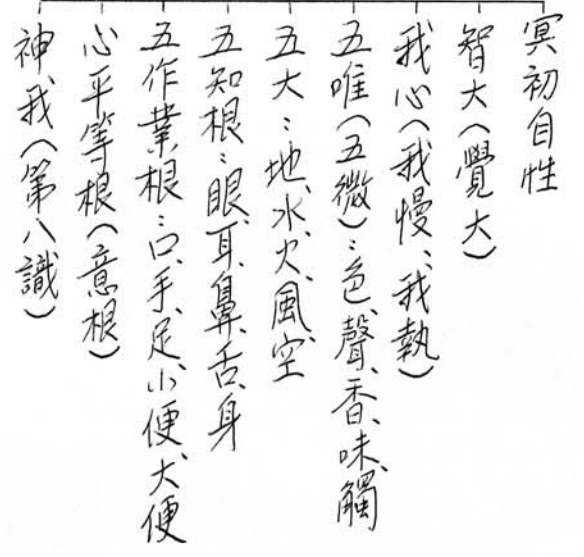 冥初自性
智大(覺大)
我心(我慢、我執)
五唯(五微):色、聲、香、味、觸
五大:地、水、火、風、空
五知根:眼、耳、鼻、舌、身
五作業根:口、手、足、小便、大便
心平等根(意根)
神我(第八識)